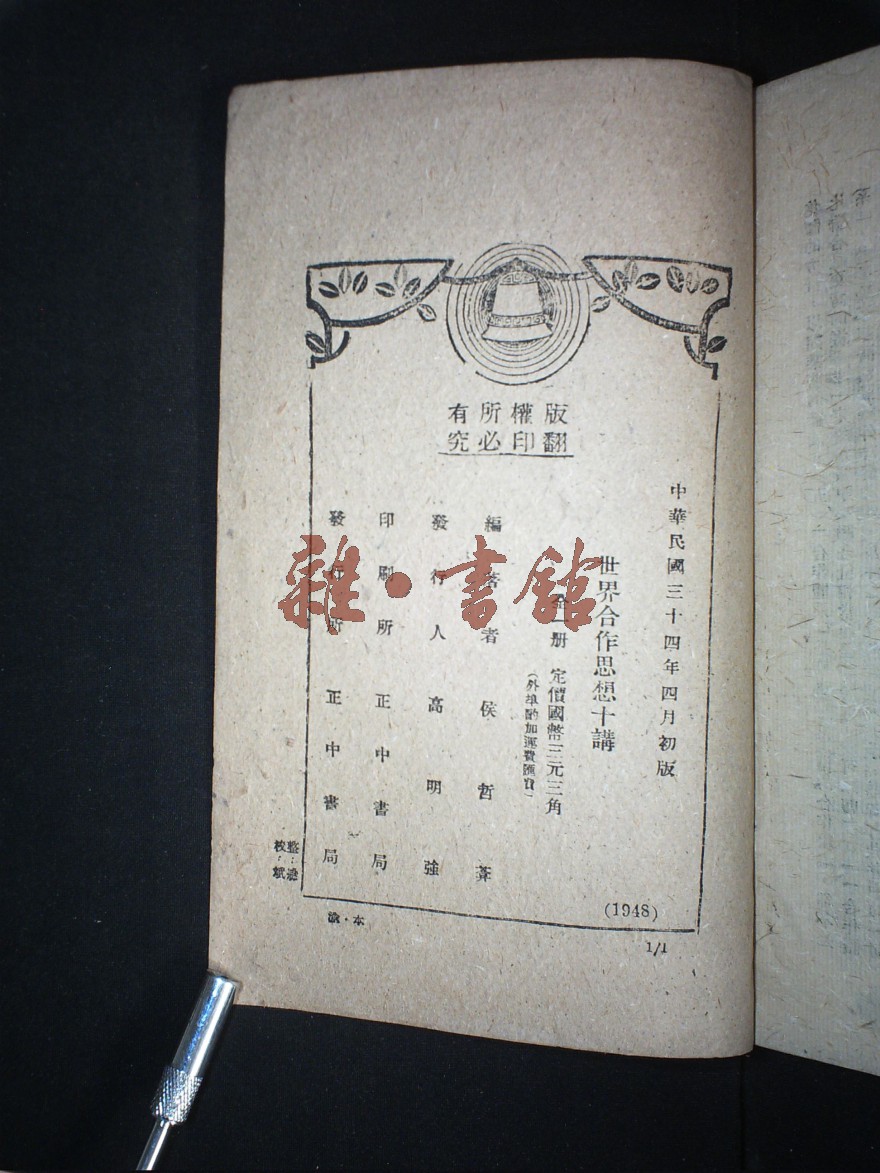 版權所有
翻印必究
中華民國三十四年四月初版
世界合作思想十講
全一册 定價國幣三元三角
(外埠酌加運費匯費)
編著者 侯哲葊
發行人 高明強
印刷所 正中書局
發行所 正中書局
(1948)
1/1
校
整
滬·本
雜·書館